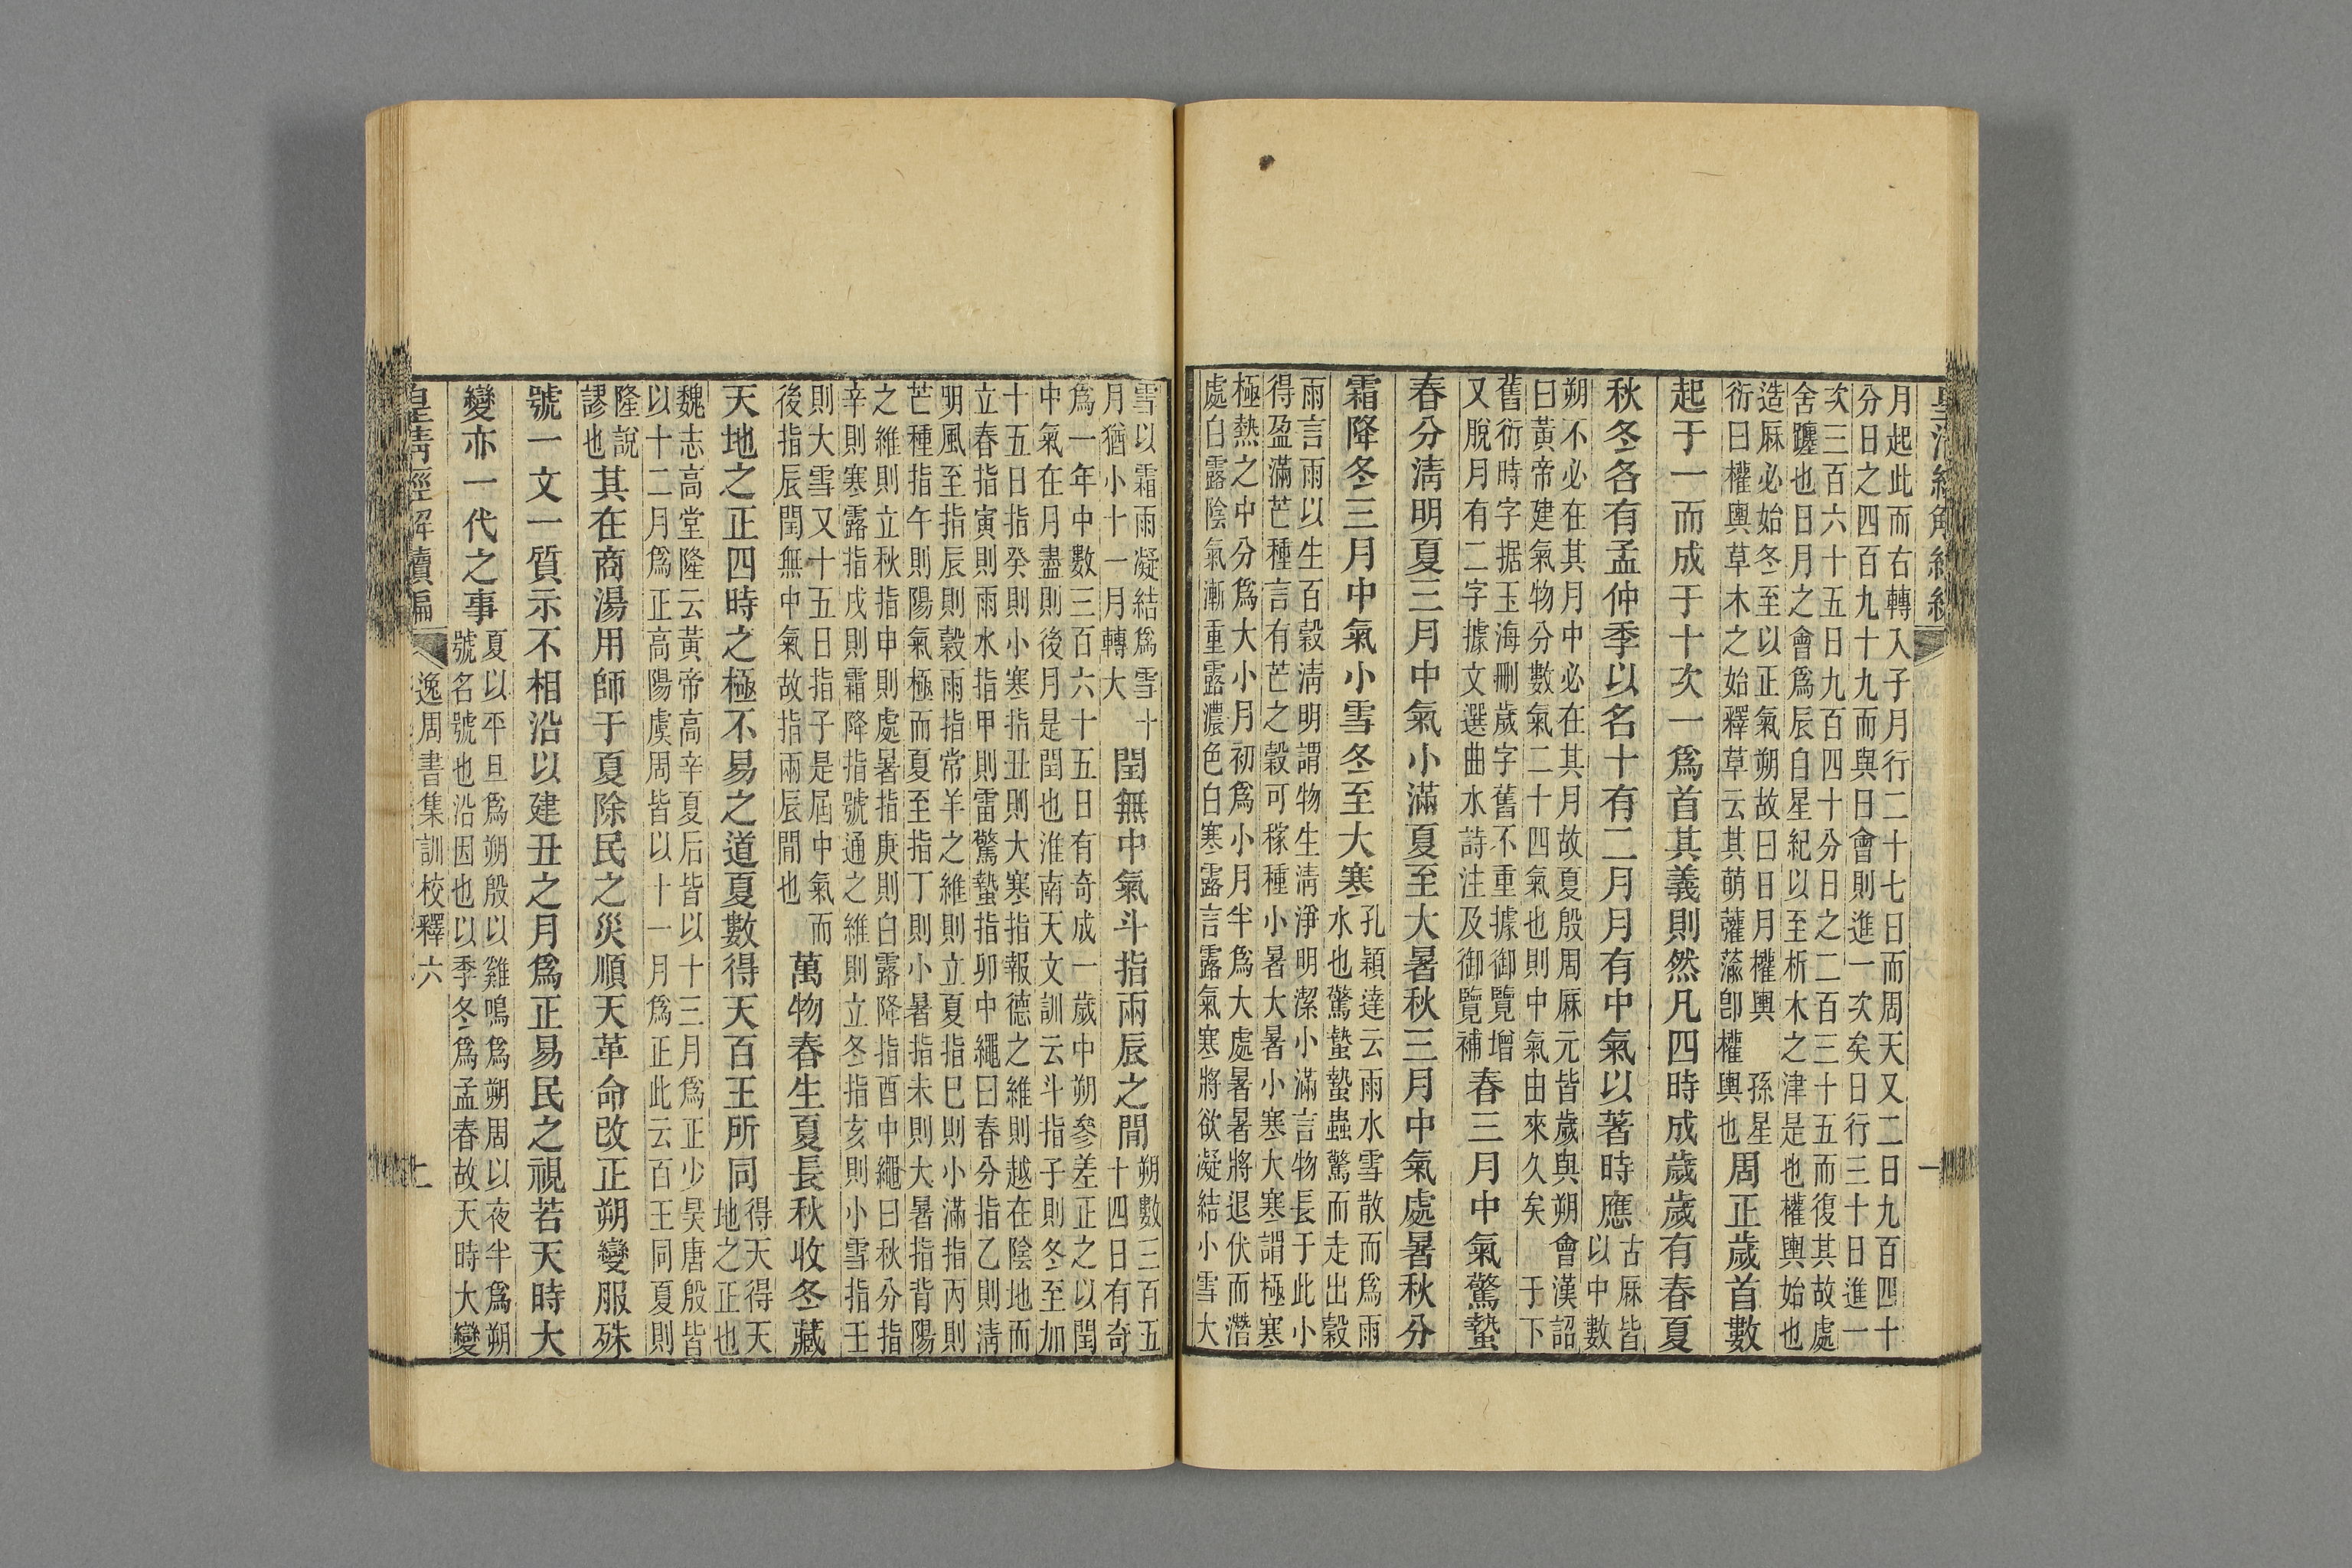 皇清經解續
月起此而右轉入子月行二十七日而周天又二日九百四十
分日之四百九十九而與日會則進一次矣日行三十日進一
次三百六十五日九百四十分日之二百三十五而復其故處
舍躔也日月之會爲辰自星紀以至析木之津是也權輿始也
造厤必始冬至以正氣朔故曰日月權輿 孫星
衍曰權輿草木之始釋草云其萌虇蕍卽權輿也
周正歲首數
起于一而成于十次一爲首其義則然凡四時成歲歲有春夏
秋冬各有孟仲季以名十有二月月有中氣以著時應
古厤皆
以中數
朔不必在其月中必在其月故夏殷周厤元皆歲與朔會漢詔
曰黃帝建氣物分數氣二十四氣也則中氣由來久矣 于下
舊衍時字据玉海刪歲字舊不重據御覽增
又脫月有二字據文選曲水詩注及御覽補
春三月中氣驚蟄
春分淸明夏三月中氣小滿夏至大暑秋三月中氣處暑秋分
霜降冬三月中氣小雪冬至大寒
孔穎達云雨水雪散而爲雨
水也驚蟄蟄蟲驚而走出穀
雨言雨以生百穀淸明謂物生淸淨明潔小滿言物長于此小
得盈滿芒種言有芒之穀可稼種小暑大暑小寒大寒謂極寒
極熱之中分爲大小月初爲小月半爲大處暑暑將退伏而潛
處白露陰氣漸重露濃色白寒露言露氣寒將欲凝結小雪大
雪以霜雨凝結爲雪十
月猶小十一月轉大
閏無中氣斗指兩辰之閒
朔數三百五
十四日有奇
爲一年中數三百六十五日有奇成一歲中朔參差正之以閏
中氣在月盡則後月是閏也淮南天文訓云斗指子則冬至加
十五日指癸則小寒指丑則大寒指報德之維則越在陰地而
立春指寅則雨水指甲則雷驚蟄指卯中繩曰春分指乙則淸
明風至指辰則穀雨指常羊之維則立夏指巳則小滿指丙則
芒種指午則陽氣極而夏至指丁則小暑指未則大暑指背陽
之維則立秋指申則處暑指庚則白露降指酉中繩曰秋分指
辛則寒露指戌則霜降指號通之維則立冬指亥則小雪指壬
則大雪又十五日指子是屆中氣而
後指辰閏無中氣故指兩辰閒也
萬物春生夏長秋收冬藏
天地之正四時之極不易之道夏數得天百王所同
得天得天
地之正也
魏志高堂隆云黃帝高辛夏后皆以十三月爲正少昊唐殷皆
以十二月爲正高陽虞周皆以十一月爲正此云百王同夏則
隆說
謬也
其在商湯用師于夏除民之災順天革命改正朔變服殊
號一文一質示不相沿以建丑之月爲正易民之視若天時大
變亦一代之事
夏以平旦爲朔殷以雞鳴爲朔周以夜半爲朔
號名號也沿因也以季冬爲孟春故天時大變
皇清經解續編 逸周書集訓校釋六